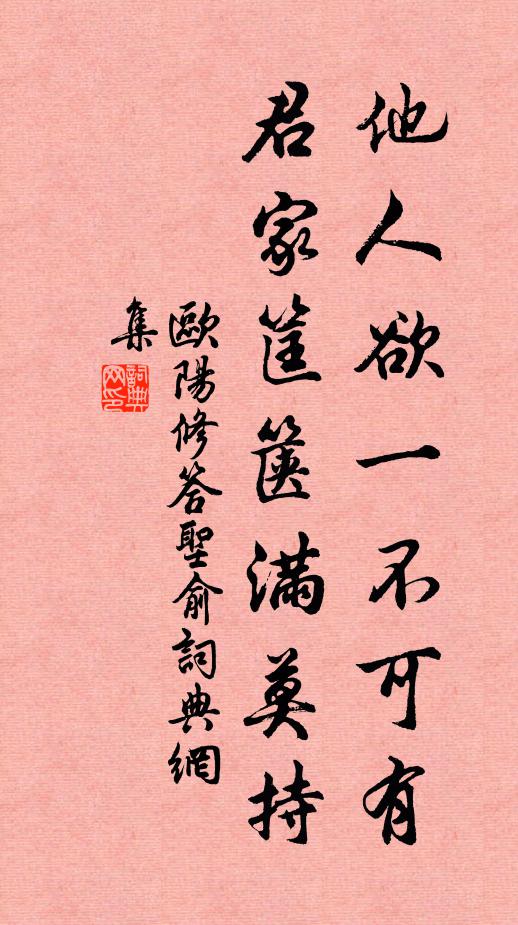 他人欲一不可有
君家筐箧滿莫持
歐陽修答聖俞詞典網
集
詞典网印